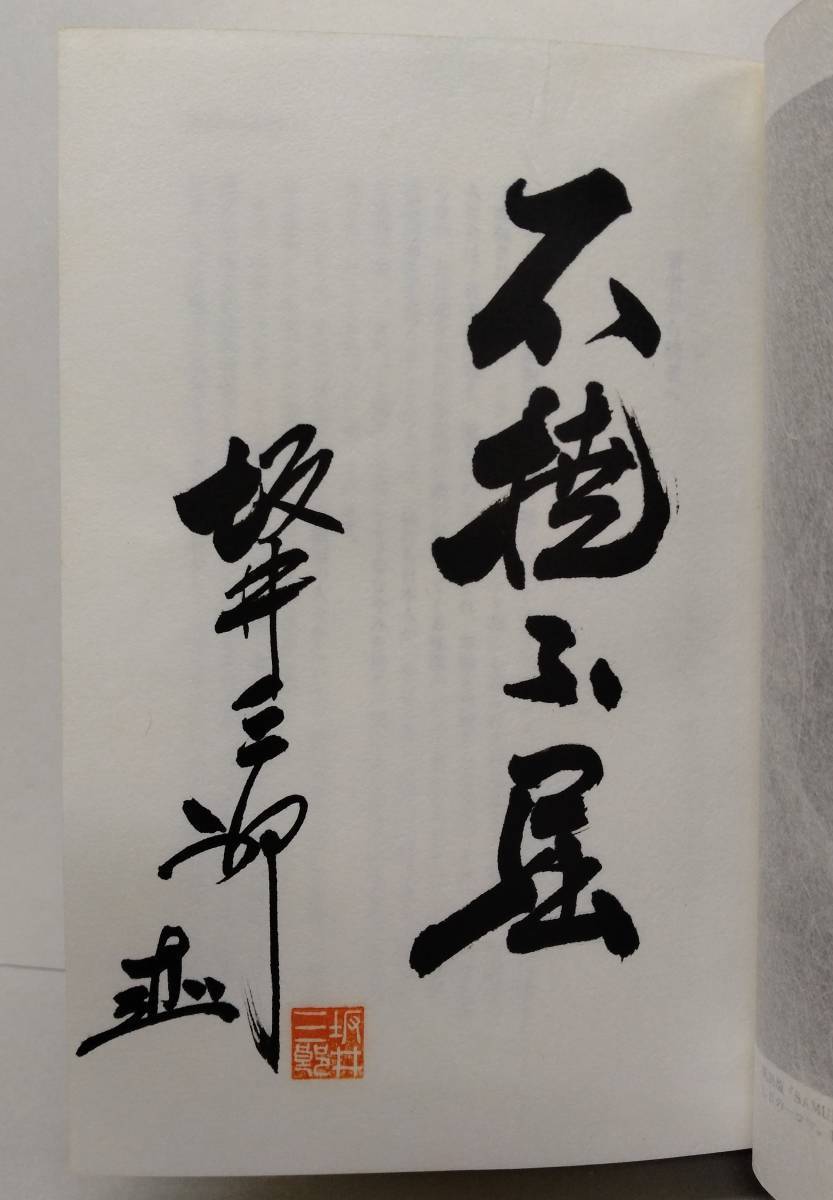 不撓不屈
坂井三郎
坂井
三郎
SAMU